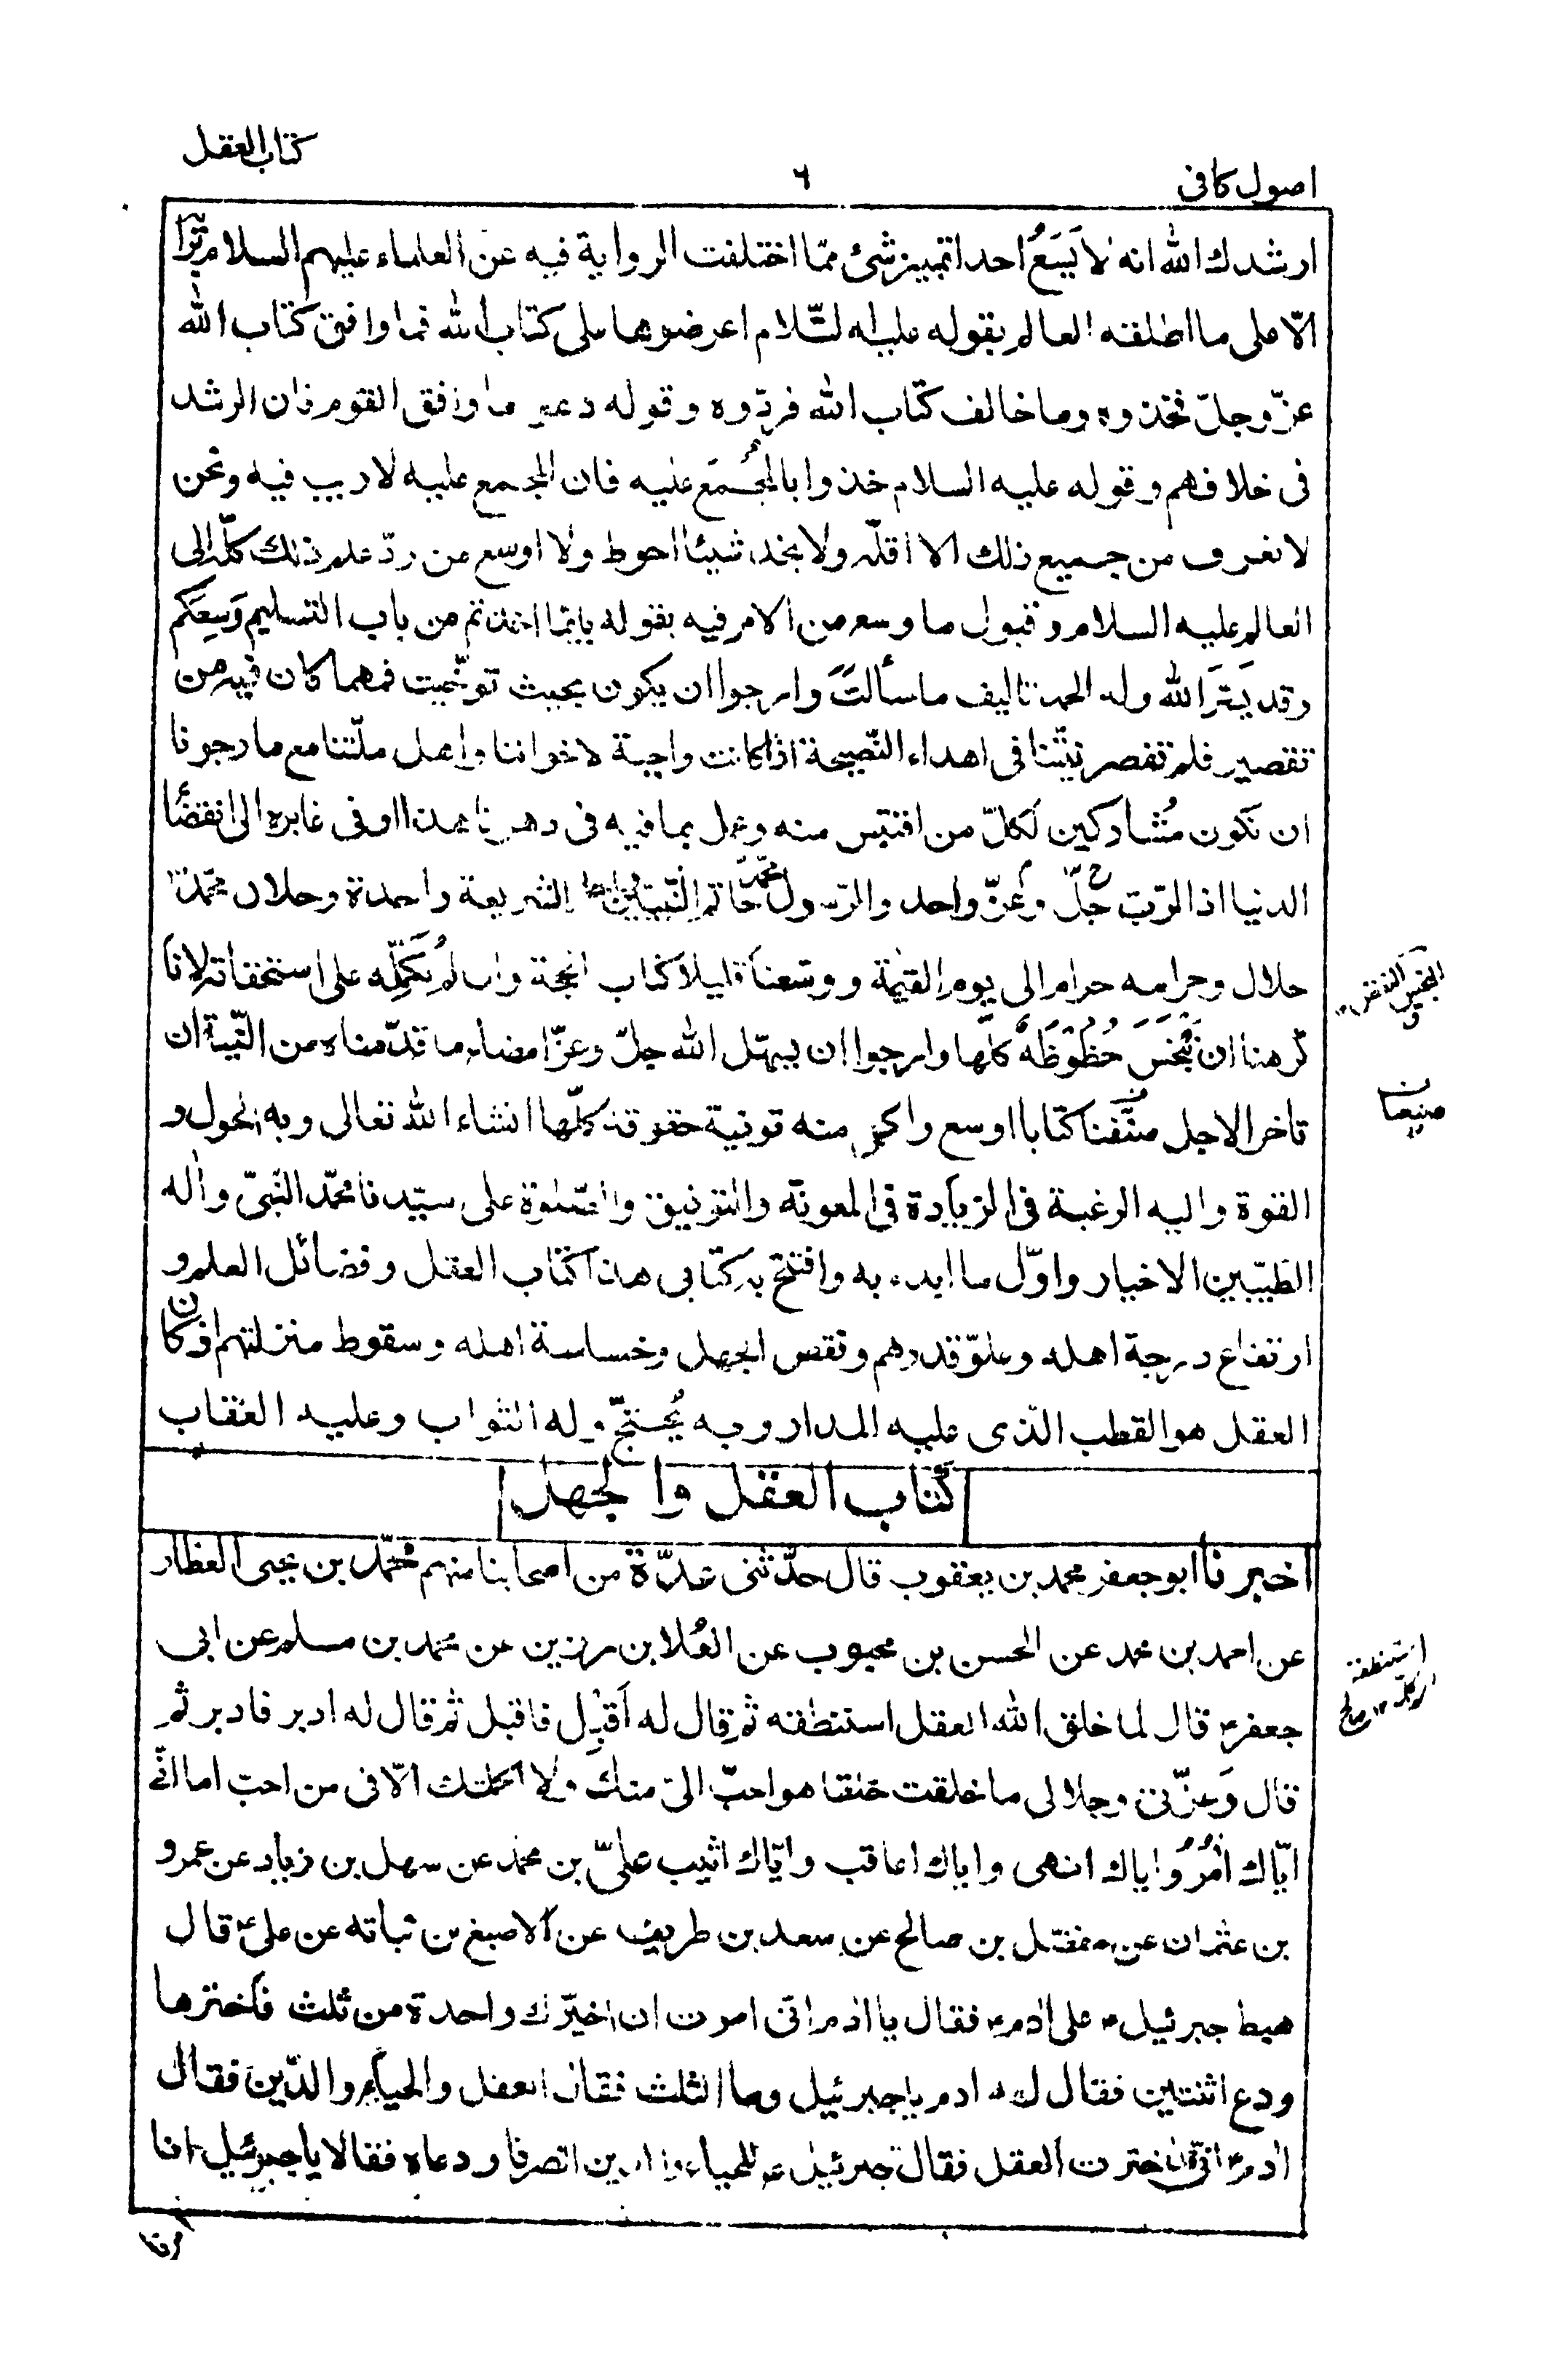 كتاب العقل
٦
اصول كافى
ارشدك الله انه لا يَسَعُ احدا تمييز شئ ممّا اختلفت الرواية فيه عن العلماء عليهم السلام برَأ
الّا على ما اطلقه العالم بقوله عليه السّلام اعرضوها على كتاب الله فما وافق كتاب الله
عزّ وجلّ فخذوه وما خالف كتاب الله فردّوه وقوله دعوا ما وافق القوم فان الرشد
فى خلافهم وقوله عليه السلام خذوا بالمُجمَع عليه فان المجمع عليه لا ريب فيه ونحن
لا نعرف من جميع ذلك الا اقلّه ولا نجد شيئا احوط ولا اوسع من ردّ علم ذلك كلّه الى
العالم عليه السلام وقبول ما وسع من الامر فيه بقوله بايّما اخذتم من باب التسليم وَسِعَكم
وقد يَسَّرَ الله وله الحمد تاليف ما سألتَ وارجوا ان يكون بحيث توخّيت فمهما كان فيه من
تقصير فلم تقصر نيّتنا فى اهداء النّصيحة اذ كانت واجبة لاخواننا واهل ملّتنا مع ما رجونا
ان نكون مُشاركين لكلّ من اقتبس منه وعمل بما فيه فى دهرنا هذا او فى غابره الى انقضاء
الدنيا اذ الرّبّ جلّ وعزّ واحد والرّسول محمّد خاتم النّبيّين واحد والشريعة واحدة وحلال محمّد
حلال وحرامه حرام الى يوم القيٰمة ووسّعنا قليلا كتاب الحجة وان لم نُكَمِّله على استحقاقه لانّا
كرهنا ان نَبْخَسَ حُظُوظَهُ كلّها وارجوا ان يسهّل الله جلّ وعزّ امضاء ما قدّمناه من النّيّة ان
تاخر الاجل صنّفنا كتابا اوسع واكمل منه توفية حقوقه كلّها انشاء الله تعالى وبه الحول و
القوة واليه الرغبة فى الزيادة فى المعونة والتوفيق والصلوٰة على سيّدنا محمّد النّبىّ واٰله
الطيّبين الاخيار واوّل ما ابدء به وافتتح به كتابى هذا كتاب العقل وفضائل العلم و
ارتفاع درجة اهله وعلوّ قدرهم ونقص الجهل وخساسة اهله وسقوط منزلتهم اذ كان
العقل هو القطب الّذى عليه المدار وبه يُحتجّ وله الثواب وعليه العقاب
كتاب العقل والجهل
اخبرنا ابو جعفر محمد بن يعقوب قال حدّثنى عدّة من اصحابنا منهم محمّد بن يحيى العطار
عن احمد بن محمد عن الحسن بن محبوب عن العُلا بن رزين عن محمد بن مسلم عن ابى
جعفرؑ قال لما خلق الله العقل استنطقه ثم قال له اَقبِل فاقبل ثم قال له ادبر فادبر ثم
قال وَعزّتى وجلالى ما خلقت خلقا هو احبّ الىّ منك ولا اكملتك الّا فى من احب اما انّى
ايّاك اٰمُرُ واياك انهى واياك اعاقب وايّاك اثيب علىّ بن محمد عن سهل بن زياد عن عمرو
بن عثمان عن مفضّل بن صالح عن سعد بن طريف عن الاصبغ بن نباته عن علىؑ قال
هبط جبرئيلؑ على اٰدمؑ فقال يا اٰدم انّى امرت ان اخيّرك واحدة من ثلث فاخترها
ودع اثنتين فقال له ادم يا جبرئيل وما الثلث فقال العقل والحياء والدّين فقال
اٰدمؑ انّى قد اخترت العقل فقال جبرئيلؑ للحياء والدين انصرفا ودعاه فقالا يا جبرئيل انا
امرنا
البخس النقص
صنيعنا
استنطقه
صالح